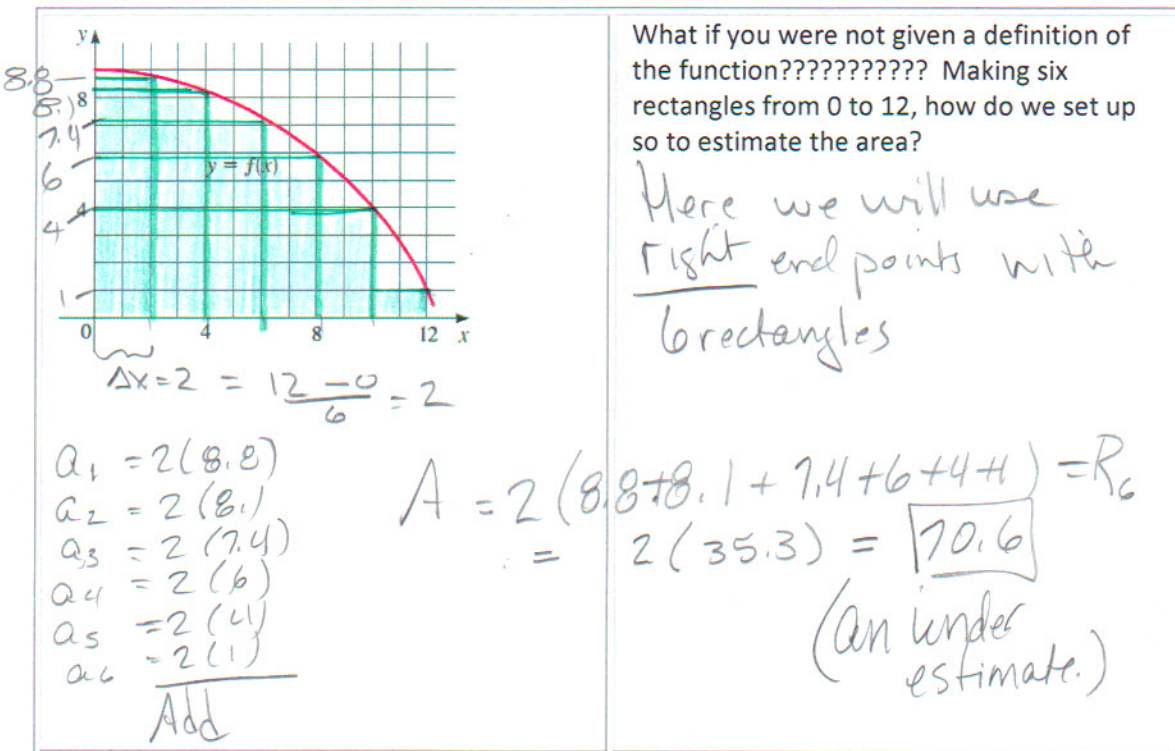 y
8.8
8.1
8
7.4
6
4
4
1
y = f(x)
0
4
8
12
x
Δx=2 = 12-0/6 = 2
a1 = 2(8.8)
a2 = 2(8.1)
a3 = 2(7.4)
a4 = 2(6)
a5 = 2(4)
a6 = 2(1)
Add
What if you were not given a definition of
the function??????????? Making six
rectangles from 0 to 12, how do we set up
so to estimate the area?
Here we will use
right end points with
6 rectangles
A = 2(8.8+8.1+7.4+6+4+1) = R6
= 2(35.3) = 70.6
(an under
estimate.)